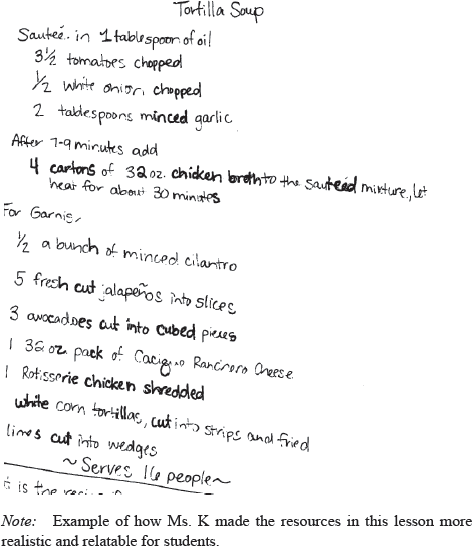 Tortilla Soup
Sauteé in 1 tablespoon of oil
3½ tomatoes chopped
½ white onion, chopped
2 tablespoons minced garlic
After 7-9 minutes add
4 cartons of 32 oz. chicken broth to the sauteéd mixture, let
heat for about 30 minutes
For Garnis
½ a bunch of minced cilantro
5 fresh cut jalapeños into slices
3 avocadoes cut into cubed pieces
1 32 oz. pack of Ranchero Cheese
1 Rotisserie chicken shredded
white corn tortillas, cut into strips and fried
limes cut into wedges
~Serves 16 people~
it is the
Note: Example of how Ms. K made the resources in this lesson more
realistic and relatable for students.